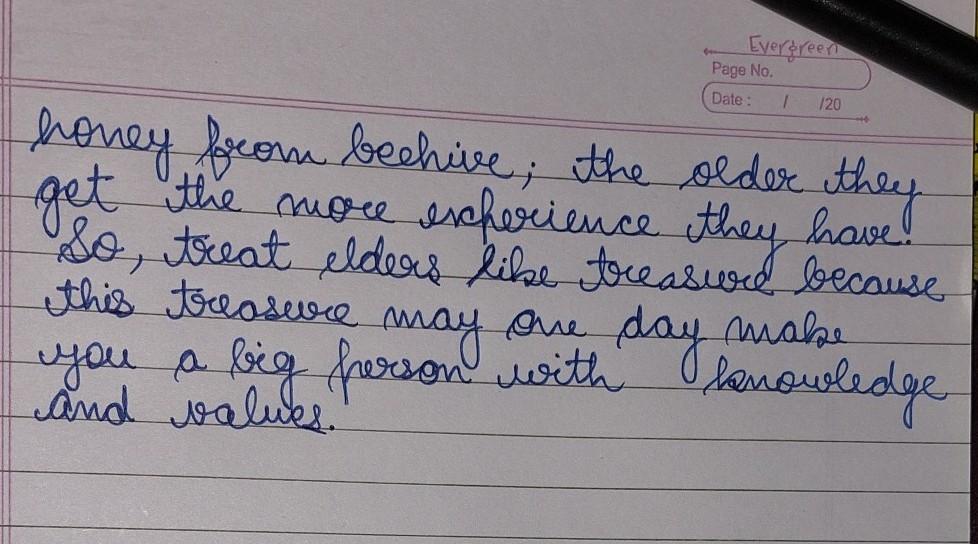 Evergreen
Page No.
Date : / /20
honey from beehive; the older they
get the more experience they have!
So, treat elders like treasure because
this treasure may one day make
you a big person with knowledge
and values.